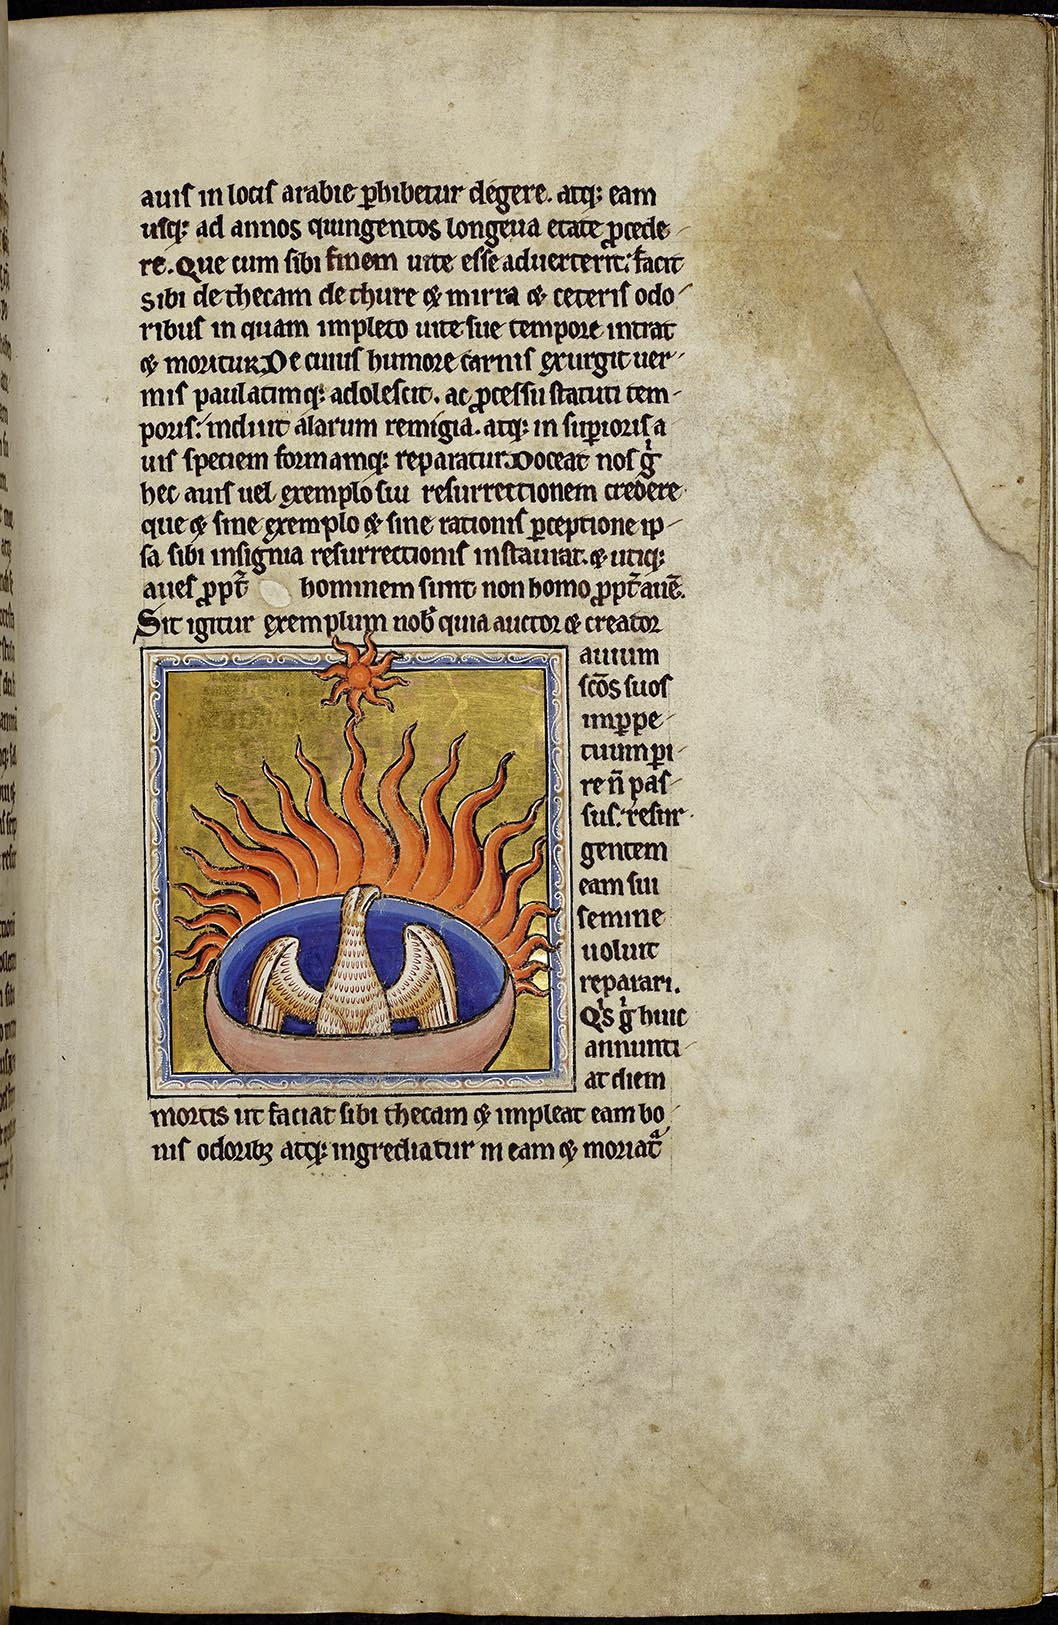 56
auis in locis arabie ꝑhibetur degere. atq; eam
usq; ad annos quingentos longeua etate ꝓcede
re. Que cum sibi finem uite esse aduerterit: facit
sibi de thecam de thure ⁊ mirra ⁊ ceteris odo
ribus in quam impleto uite sue tempore intrat
⁊ moritur. De cuius humore carnis exurgit uer
mis paulatimq; adolescit. ac ꝓcessu statuti tem
poris: induit alarum remigia. atq; in suꝑioris a
uis speciem formamq; reparatur. Doceat nos gͥ
hec auis uel exemplo sui resurrectionem credere
que ⁊ sine exemplo ⁊ sine rationis ꝑceptione ip
sa sibi insignia resurrectionis instaurat. ⁊ utiq;
aues ꝓpt̄ hominem sunt non homo ꝓpt̄ auē.
Sit igitur exemplum nob̄ quia auctor ⁊ creator
auium
sc̄os suos
imꝑpe
tuum ꝑi
re n̄ pas
sus: resur
gentem
eam sui
semine
uoluit
reparari.
Qͥs gͥ huic
annunti
at diem
mortis ut faciat sibi thecam ⁊ impleat eam bo
nis odoribꝫ atq; ingrediatur in eam ⁊ moriat᷑